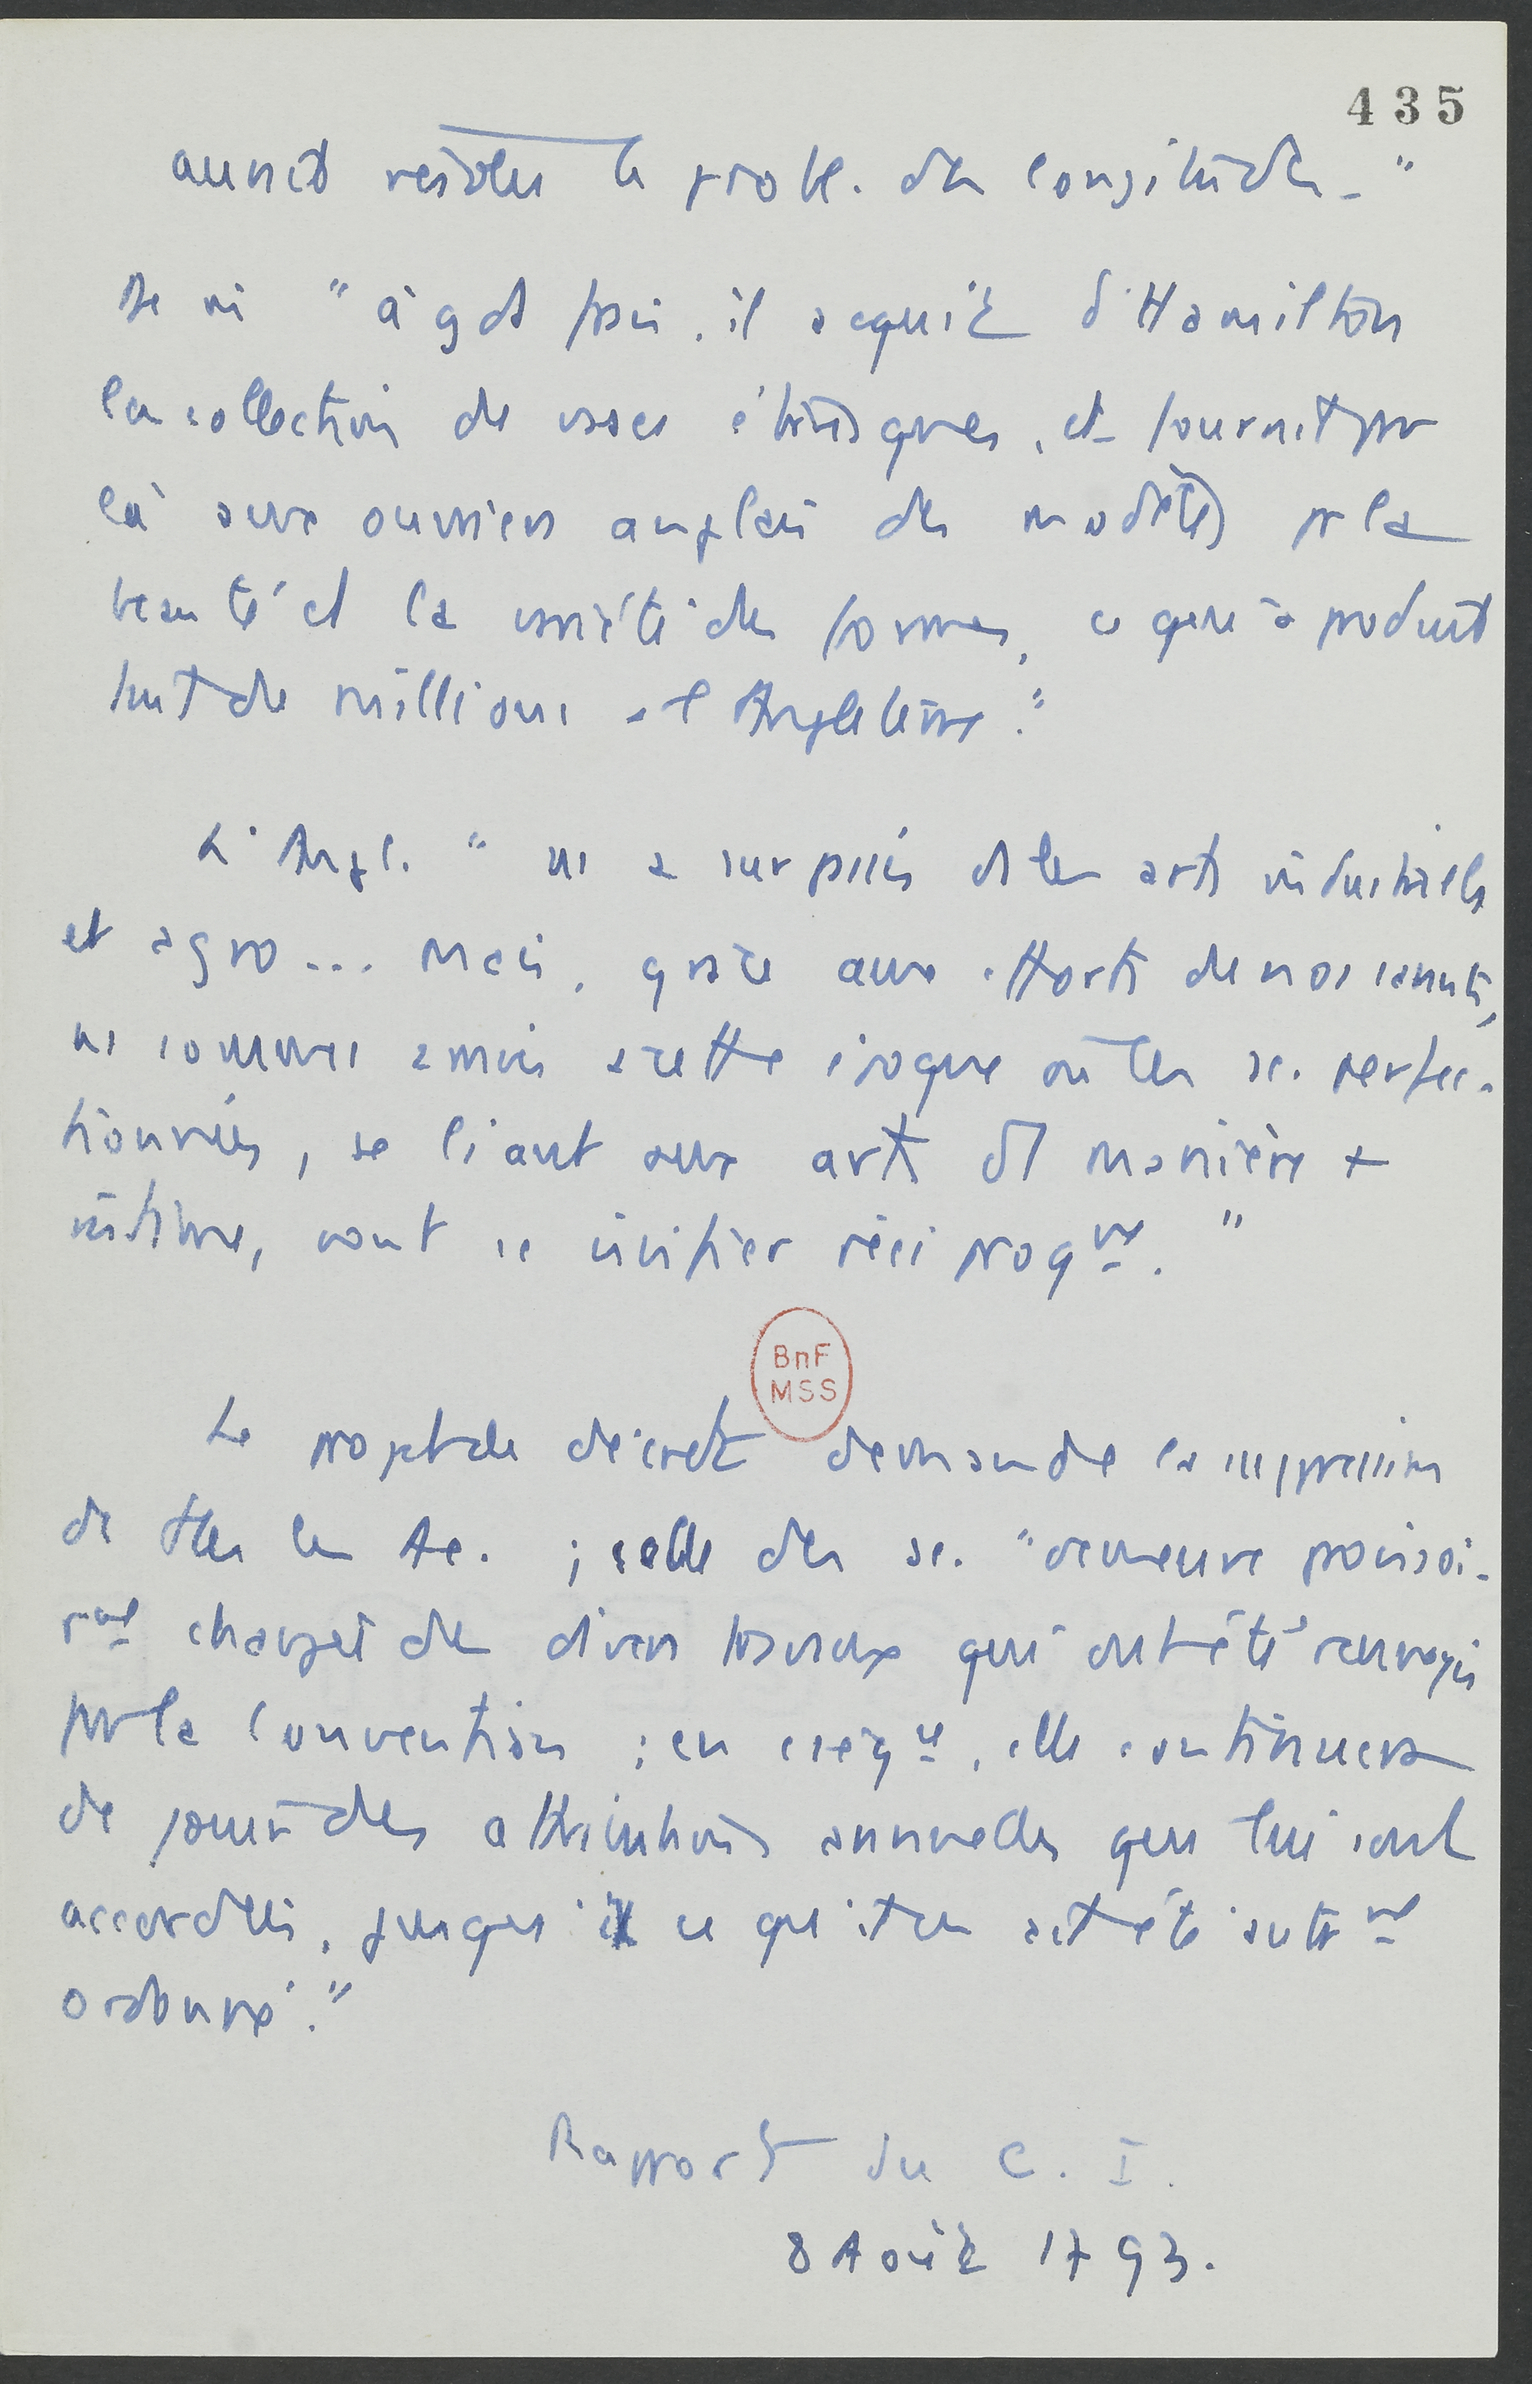 435
aurait résolu le probl. des longitudes - "
De m̂ " à gds frais, il acquit d'Hamilton
la collection de vases étrusques, et fournit par
là aux ouvriers anglais des modèles pr la
beauté et la variété des formes, ce qui a produit
tant de millions à l'Angleterre."
L'Angl. " ns a surpassés ds les arts industriels
et agro... Mais, grâce aux efforts de nos savants,
ns sommes arrivés à cette époque où les sc. perfec-
tionnées, se liant aux arts d'1 manière +
intime, vont se vivifier réciproqmt. "
BnF
MSS
Le projet de décret demande la suppression
de ttes les Ac. ; celle des sc. "demeure provisoi-
rmt chargée des divers travaux qui ont été renvoyés
par la Convention ; en cséqu, elle continuera
de jouir des attributions annuelles qui lui sont
accordées, jusqu'à ce qu'il en ait été autrmt
ordonné."
Rapport du C. I.
8 Août 1793.